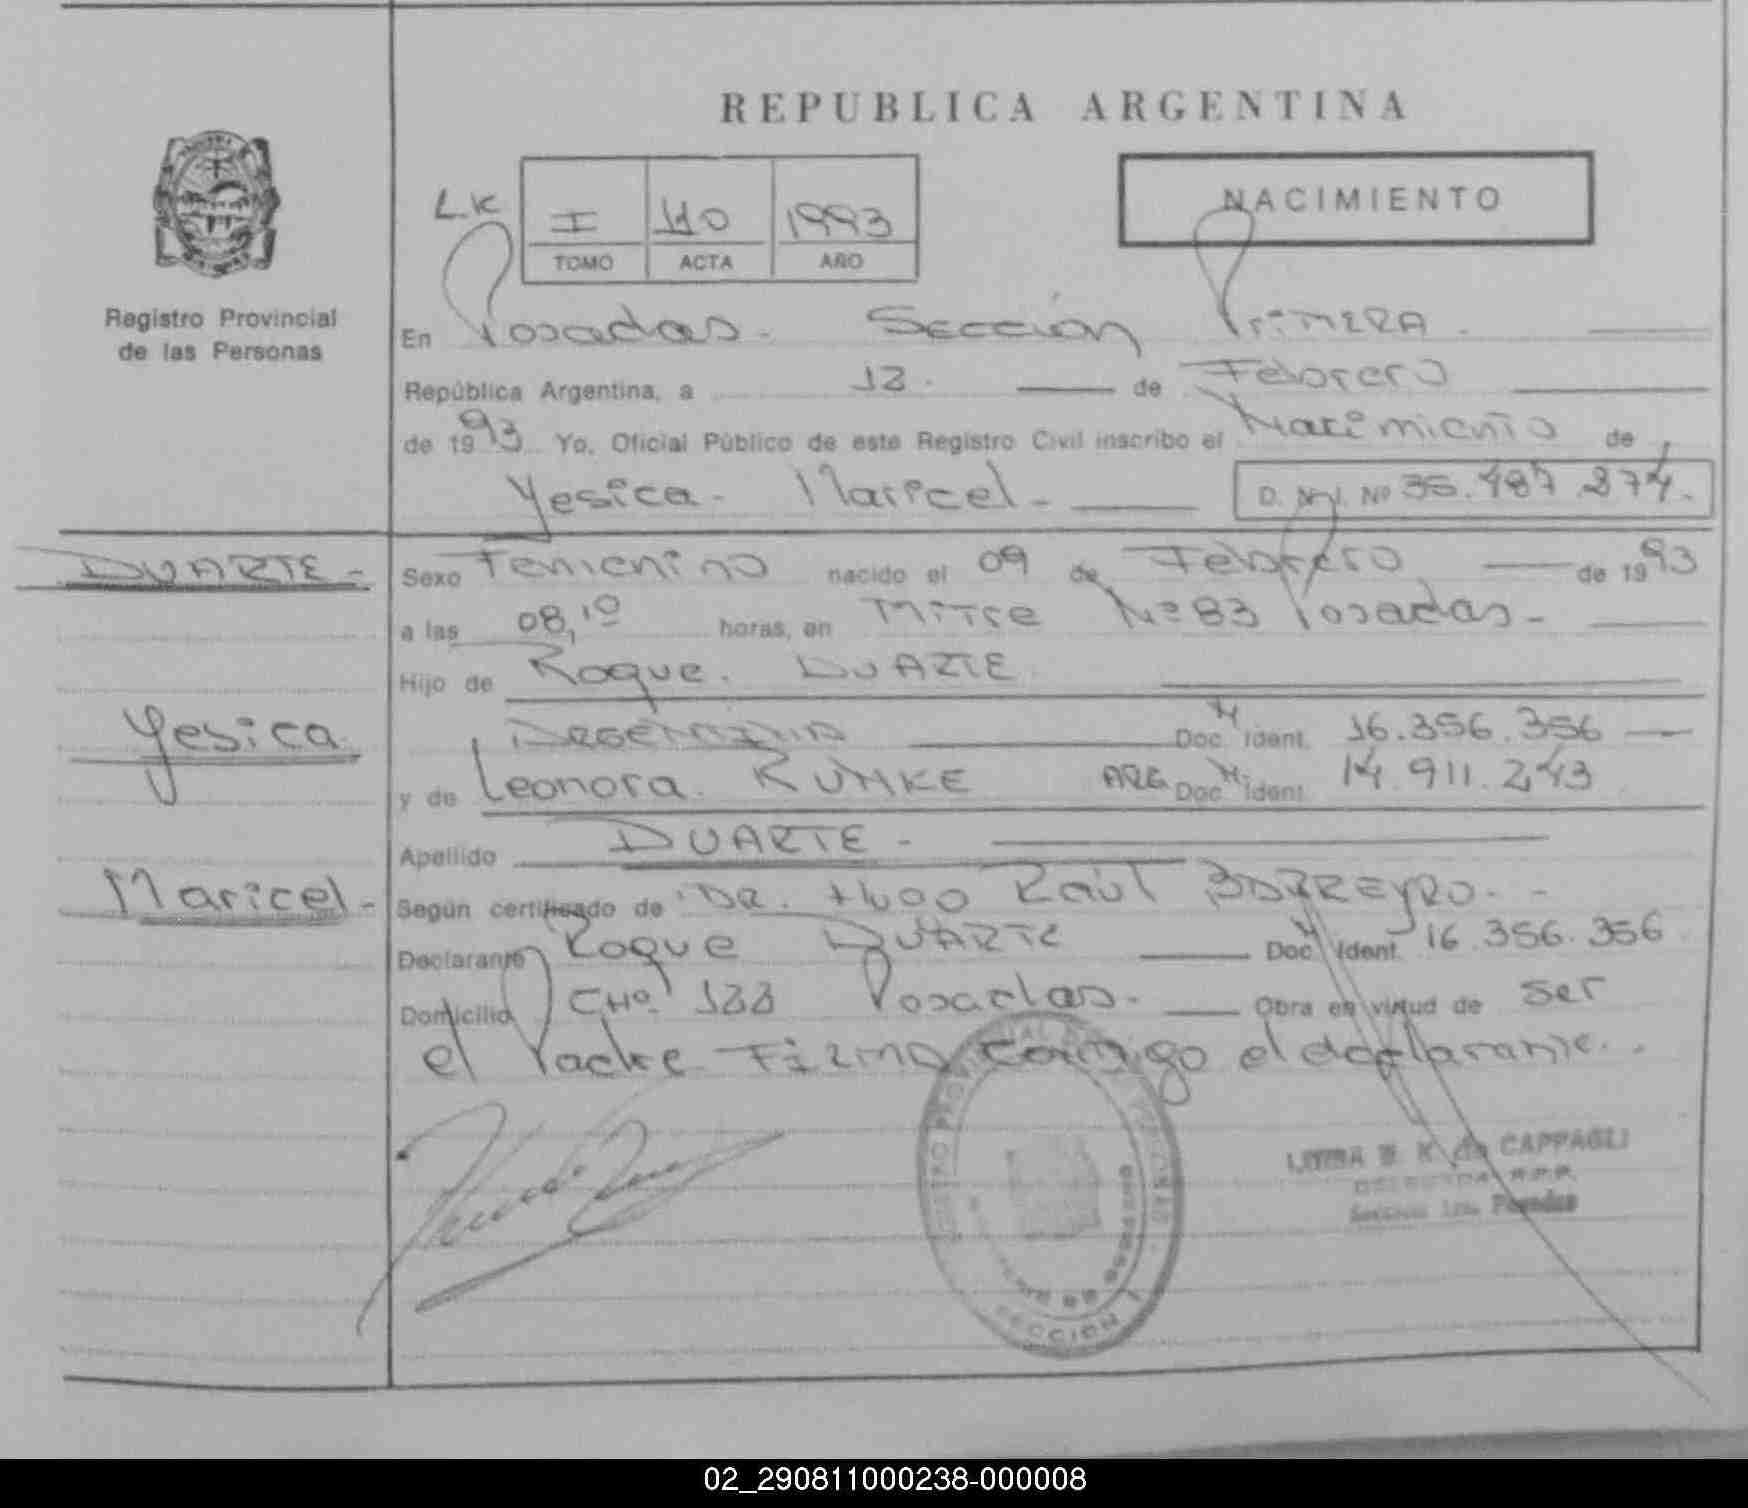 REPUBLICA ARGENTINA
NACIMIENTO
LK
I 110 1993
TOMO ACTA AÑO
Registro Provincial
de las Personas
En Posadas. Sección Primera.
República Argentina, a 12. de Febrero
de 1993 Yo, Oficial Público de este Registro Civil inscribo el Nacimiento de
Yesica Maricel- D. N.I. Nº 35.487.274.
DUARTE -
Sexo Femenino nacido el 09 de Febrero de 1993
a las 08,10 horas, en Mitre Nº 83 Posadas-
Hijo de Roque. DUARTE
Yesica
Argentina Doc. Ident. 16.356.356
y de Leonora. KUHKE ARG Doc. Ident. 14.911.243
Apellido DUARTE -
Maricel-
Según certificado de DR. Hugo Raúl BARREYRO.
Declarante Roque DUARTE Doc. Ident. 16.356.356
Domicilio CHº 122 Posadas. Obra en virtud de ser
el Padre Firma conmigo el declarante.
de CAPPAGLI
DELEGADA R.P.P.
Sección 1ra. Posadas
SECCION 1
02_290811000238-000008